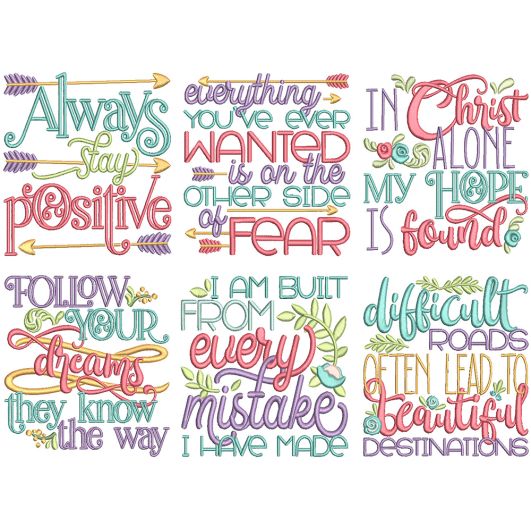 Always
stay
positive
everything
YOU'VE EVER
WANTED
is on the
OTHER SIDE
of FEAR
IN Christ
ALONE
MY HOPE
IS found
FOLLOW
YOUR
dreams
they know
the way
I AM BUILT
FROM
every
mistake
I HAVE MADE
difficult
ROADS
OFTEN LEAD TO
beautiful
DESTINATIONS